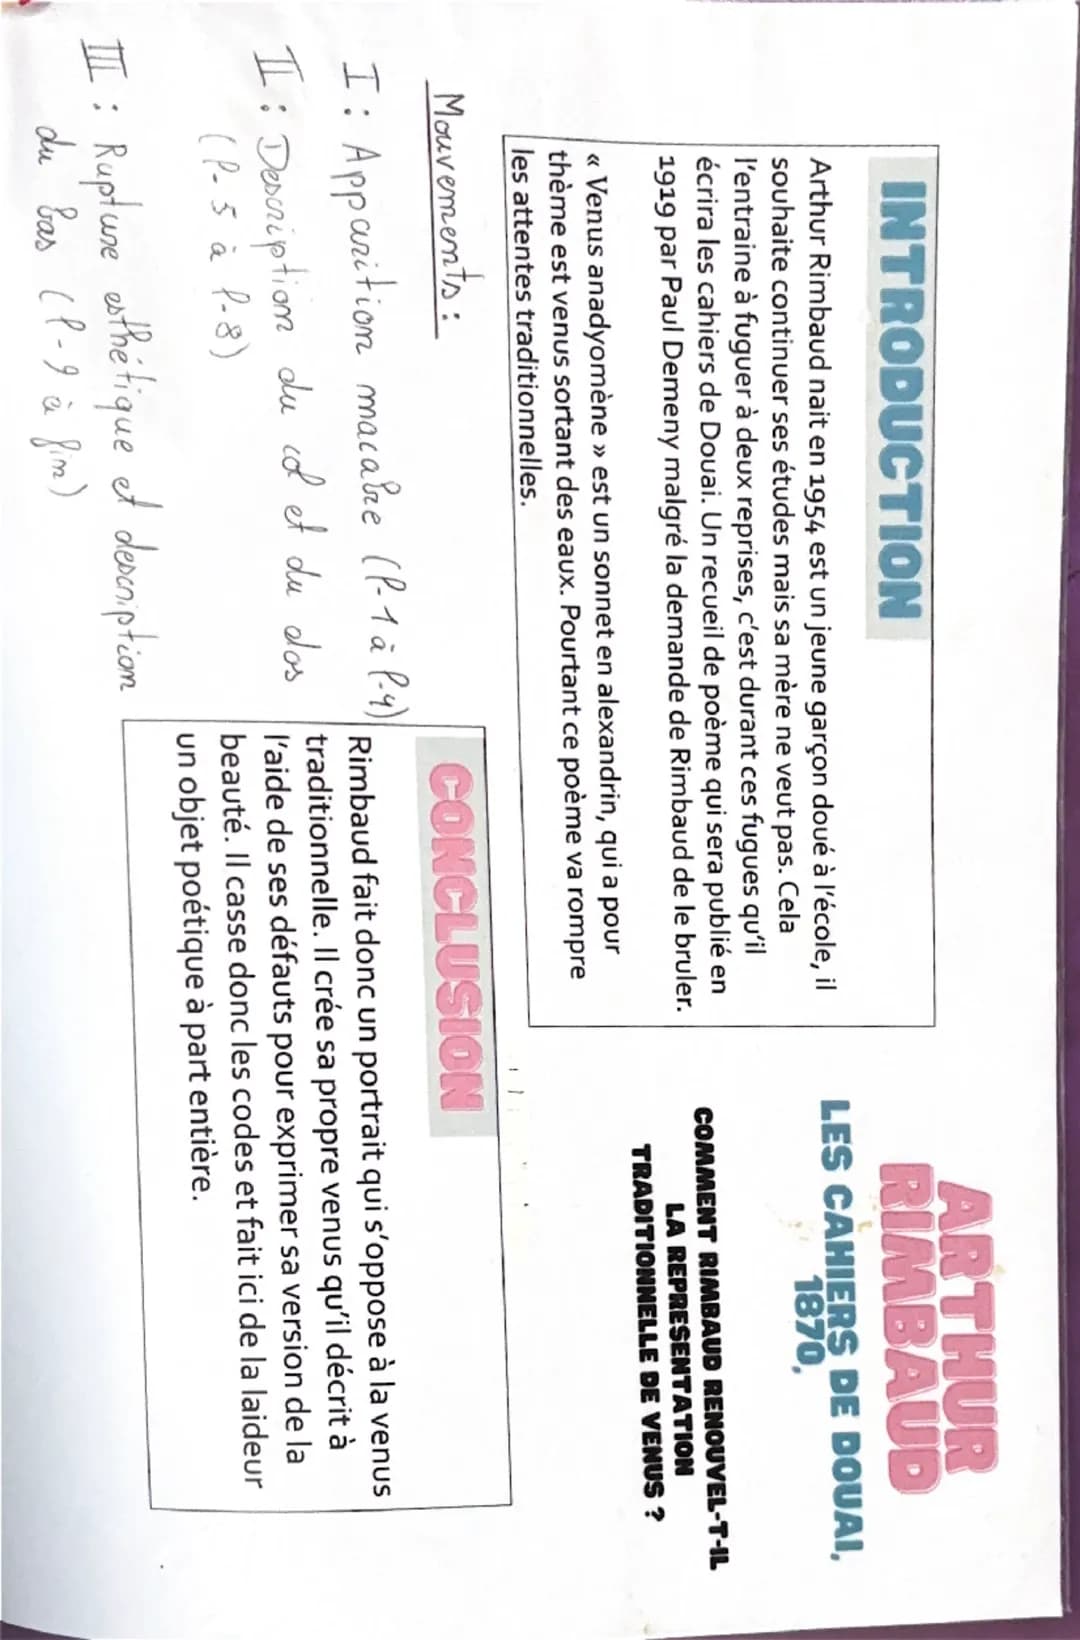 ARTHUR
RIMBAUD
LES CAHIERS DE DOUAI,
1870,
COMMENT RIMBAUD RENOUVEL-T-IL
LA REPRESENTATION
TRADITIONNELLE DE VENUS ?
INTRODUCTION
Arthur Rimbaud nait en 1954 est un jeune garçon doué à l'école, il
souhaite continuer ses études mais sa mère ne veut pas. Cela
l'entraine à fuguer à deux reprises, c'est durant ces fugues qu'il
écrira les cahiers de Douai. Un recueil de poème qui sera publié en
1919 par Paul Demeny malgré la demande de Rimbaud de le bruler.
« Venus anadyomène » est un sonnet en alexandrin, qui a pour
thème est venus sortant des eaux. Pourtant ce poème va rompre
les attentes traditionnelles.
Mouvements :
I : Apparition macabre (l-1 à l-4)
II : Description du col et du dos
(l-5 à l-8)
III : Rupture esthétique et description
du bas (l-9 à fin)
CONCLUSION
Rimbaud fait donc un portrait qui s'oppose à la venus
traditionnelle. Il crée sa propre venus qu'il décrit à
l'aide de ses défauts pour exprimer sa version de la
beauté. Il casse donc les codes et fait ici de la laideur
un objet poétique à part entière.